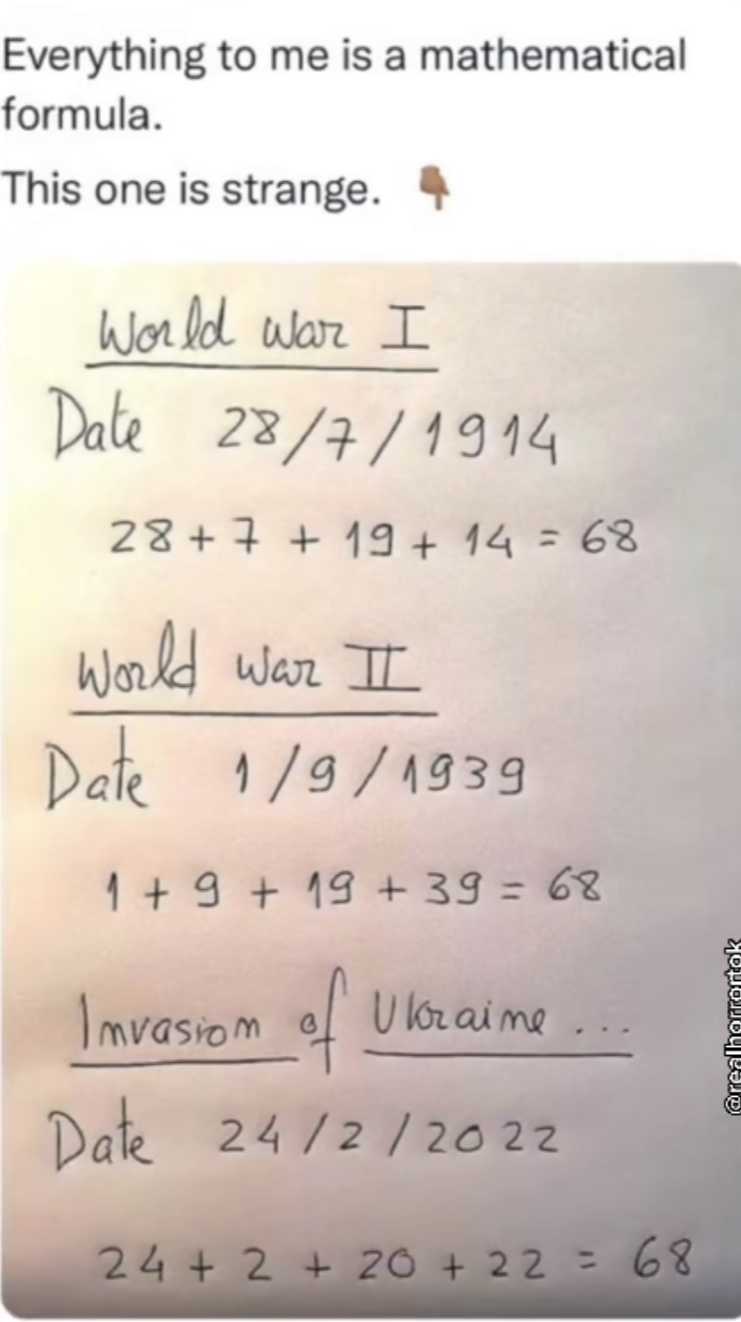 Everything to me is a mathematical
formula.
This one is strange. 👇🏾
World War I
Date 28/7/1914
28 + 7 + 19 + 14 = 68
World War II
Date 1/9/1939
1 + 9 + 19 + 39 = 68
Invasion of Ukraine ...
Date 24/2/2022
24 + 2 + 20 + 22 = 68
@realhorrortok